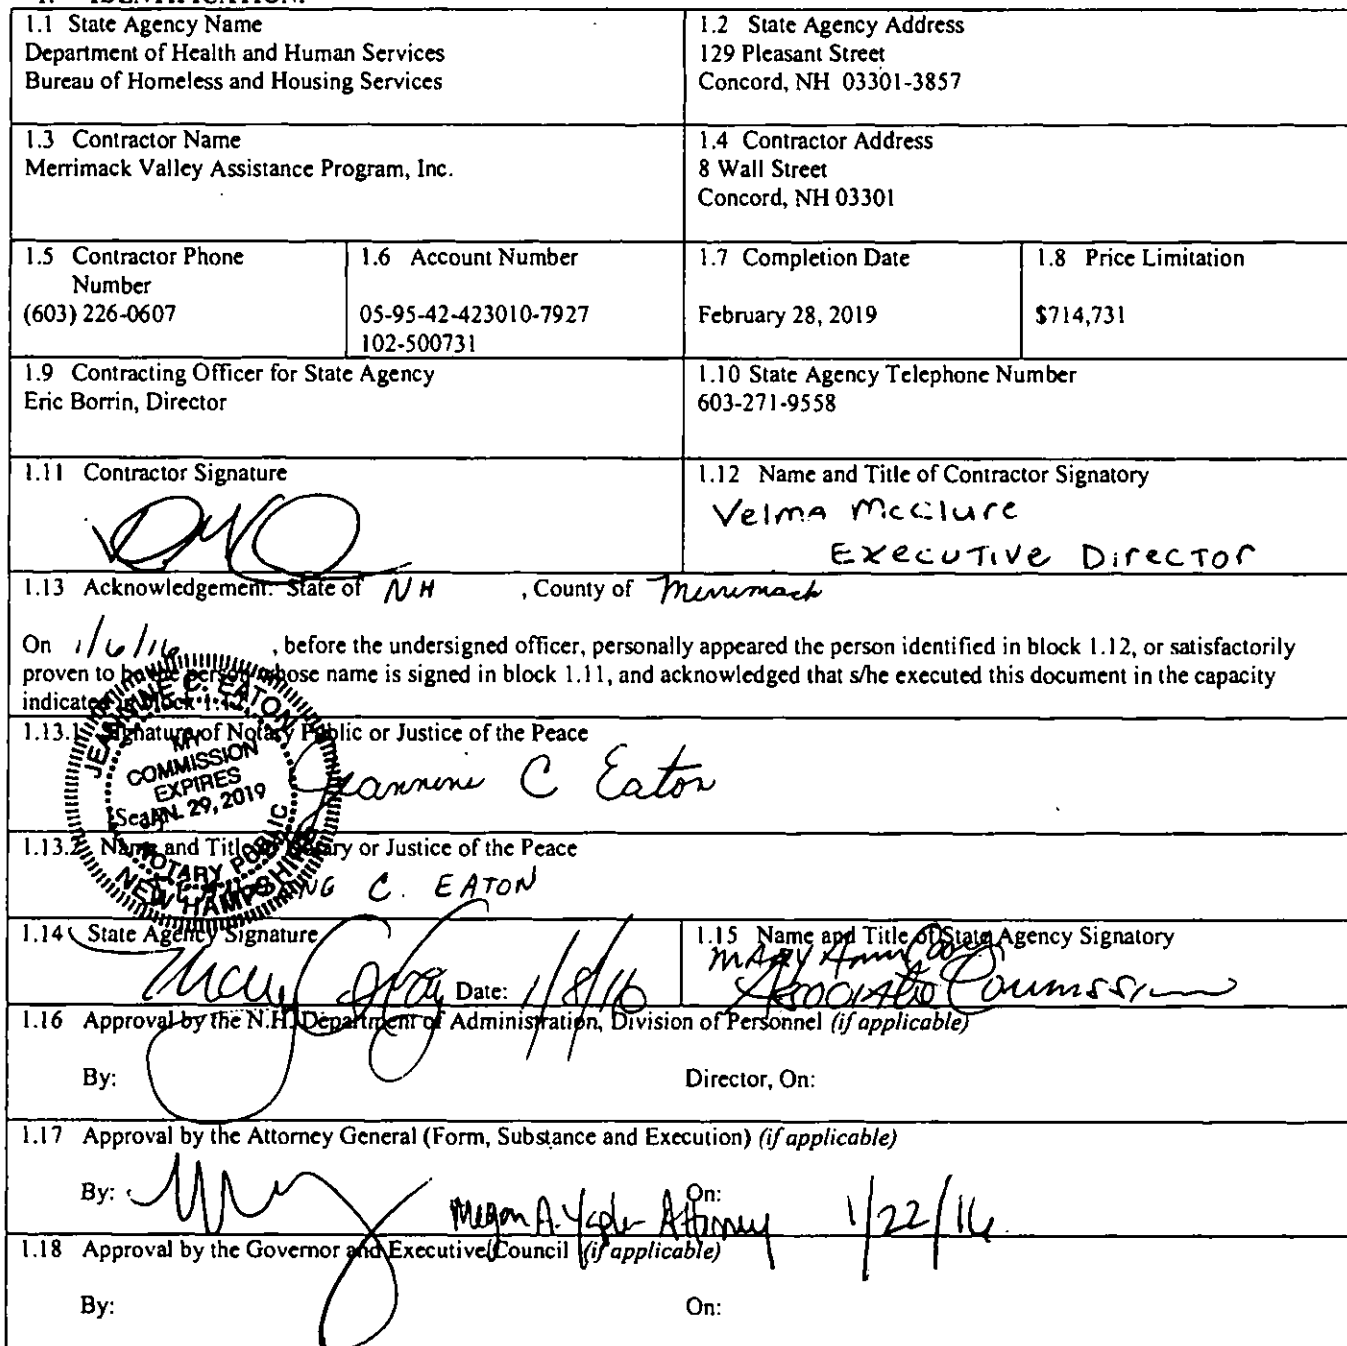 1.1 State Agency Name
Department of Health and Human Services
Bureau of Homeless and Housing Services
1.2 State Agency Address
129 Pleasant Street
Concord, NH 03301-3857
1.3 Contractor Name
Merrimack Valley Assistance Program, Inc.
1.4 Contractor Address
8 Wall Street
Concord, NH 03301
1.5 Contractor Phone
Number
(603) 226-0607
1.6 Account Number
05-95-42-423010-7927
102-500731
1.7 Completion Date
February 28, 2019
1.8 Price Limitation
$714,731
1.9 Contracting Officer for State Agency
Eric Borrin, Director
1.10 State Agency Telephone Number
603-271-9558
1.11 Contractor Signature
1.12 Name and Title of Contractor Signatory
Velma McClure
Executive Director
1.13 Acknowledgement: State of NH , County of Merrimack
On 1/6/16 , before the undersigned officer, personally appeared the person identified in block 1.12, or satisfactorily
proven to be the person whose name is signed in block 1.11, and acknowledged that s/he executed this document in the capacity
indicated in block 1.12.
1.13.1 Signature of Notary Public or Justice of the Peace
Jeannine C Eaton
JEANNINE C. EATON
MY
COMMISSION
EXPIRES
JAN. 29, 2019
NOTARY PUBLIC
NEW HAMPSHIRE
1.13.2 Name and Title of Notary or Justice of the Peace
C. EATON
1.14 State Agency Signature
Date: 1/8/16
1.15 Name and Title of State Agency Signatory
Mary Ann
Associate Commissioner
1.16 Approval by the N.H. Department of Administration, Division of Personnel (if applicable)
By:
Director, On:
1.17 Approval by the Attorney General (Form, Substance and Execution) (if applicable)
By:
Megan A. Attorney
On:
1/22/16
1.18 Approval by the Governor and Executive Council (if applicable)
By:
On: